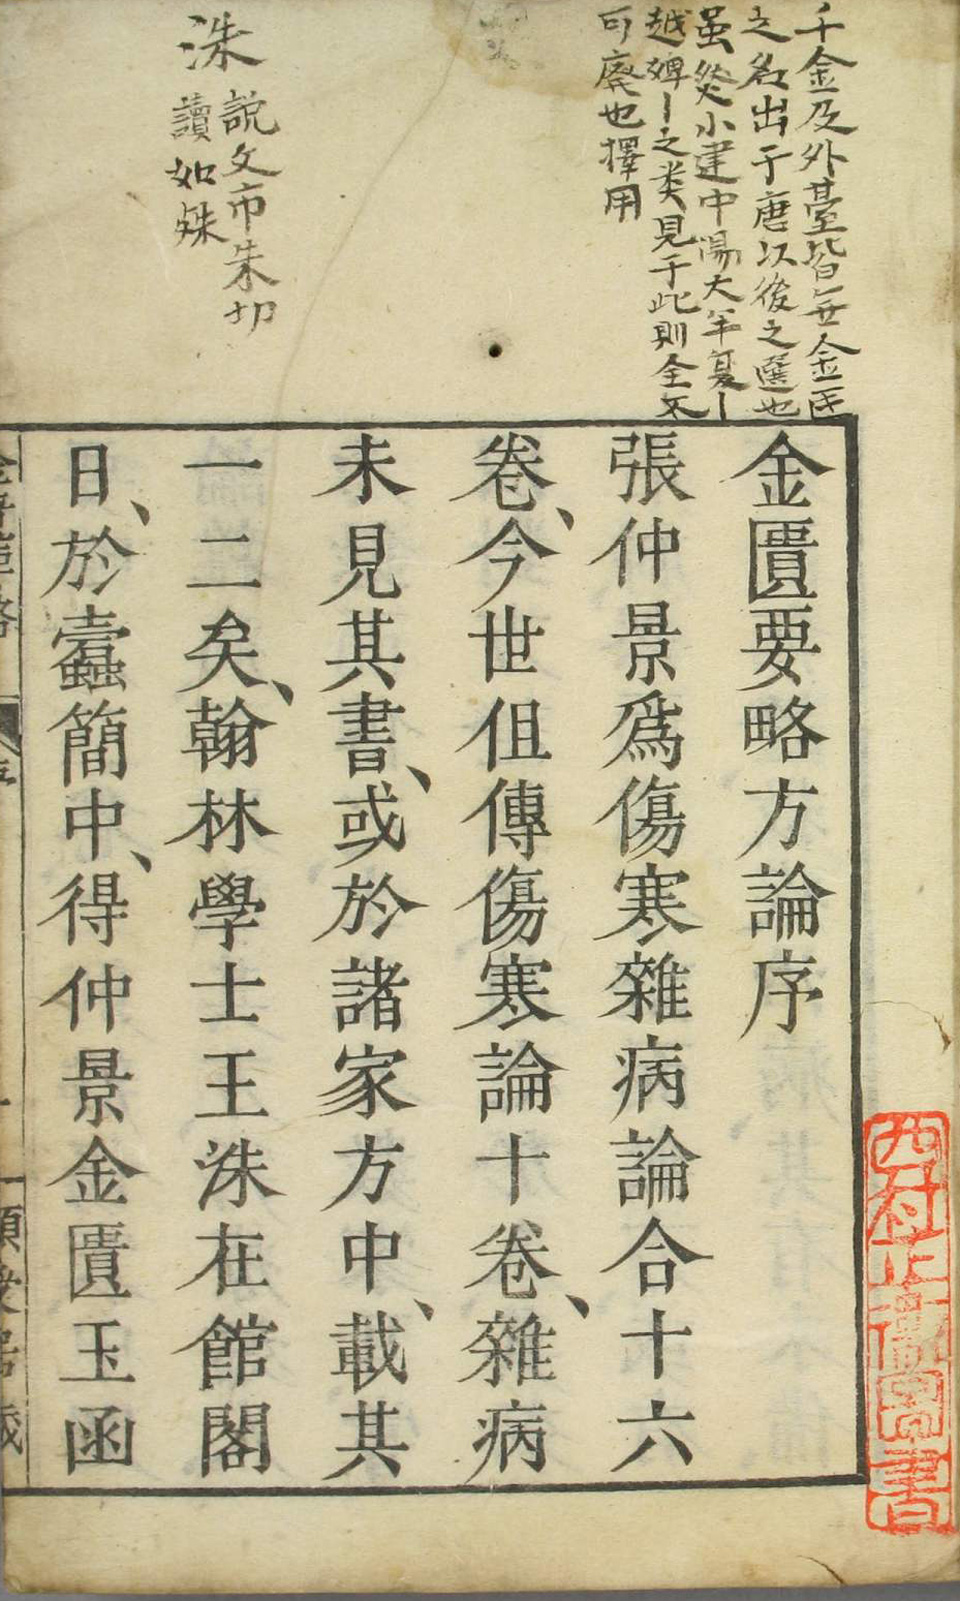 千金及外臺皆無金匱
之名出于唐以後之選也
虽然小建中湯大半夏丨
越婢丨之类見于此則全不
可廢也擇用
洙
說文市朱切
讀如殊
金匱要略方論序
張仲景爲傷寒雜病論合十六
卷、今世但傳傷寒論十卷、雜病
未見其書、或於諸家方中、載其
一二矣、翰林學士王洙在館閣
日、於蠹簡中、得仲景金匱玉函